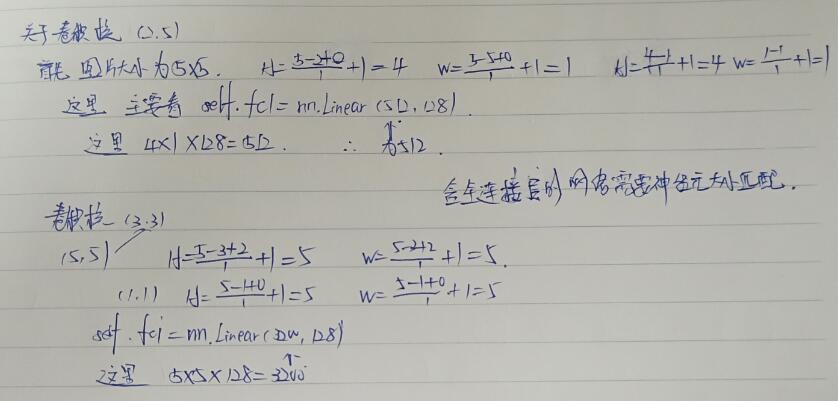 关于卷积核 (2,5)
首先 图片大小为5×5. H=(5-2+0)/1+1=4 W=(5-5+0)/1+1=1 H=(4-1)/1+1=4 W=(1-1)/1+1=1
这里 主要看 self.fc1=nn.Linear(512,128).
这里 4×1×128=512. ∴ 为512.
含全连接层的网络需要神经元大小匹配.
卷积核 (3.3)
(5,5) H=(5-3+2)/1+1=5 W=(5-3+2)/1+1=5.
(1.1) H=(5-1+0)/1+1=5 W=(5-1+0)/1+1=5
self.fc1=nn.Linear(3200,128)
↑
这里 5×5×128=3200